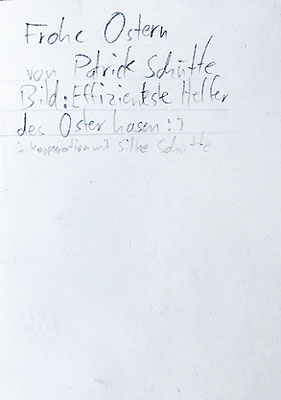 Frohe Ostern
von Patrick Schütte
Bild: Effizientste Helfer
des Osterhasen :)
in Kooperation mit Silke Schütte